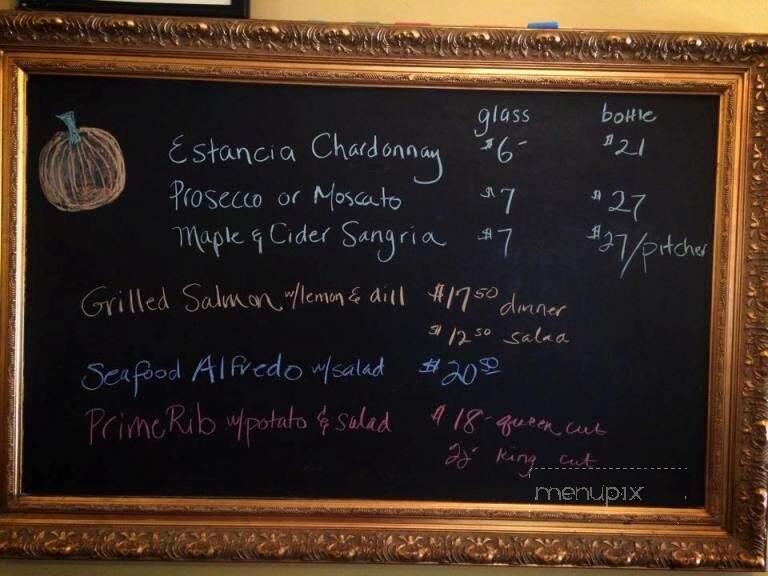 glass bottle
Estancia Chardonnay $6- $21
Prosecco or Moscato $7 $27
Maple & Cider Sangria $7 $27/pitcher
Grilled Salmon w/lemon & dill $17.50 dinner
$12.50 salad
Seafood Alfredo w/salad $20.50
Prime Rib w/potato & salad $18- queen cut
22- king cut
menupix